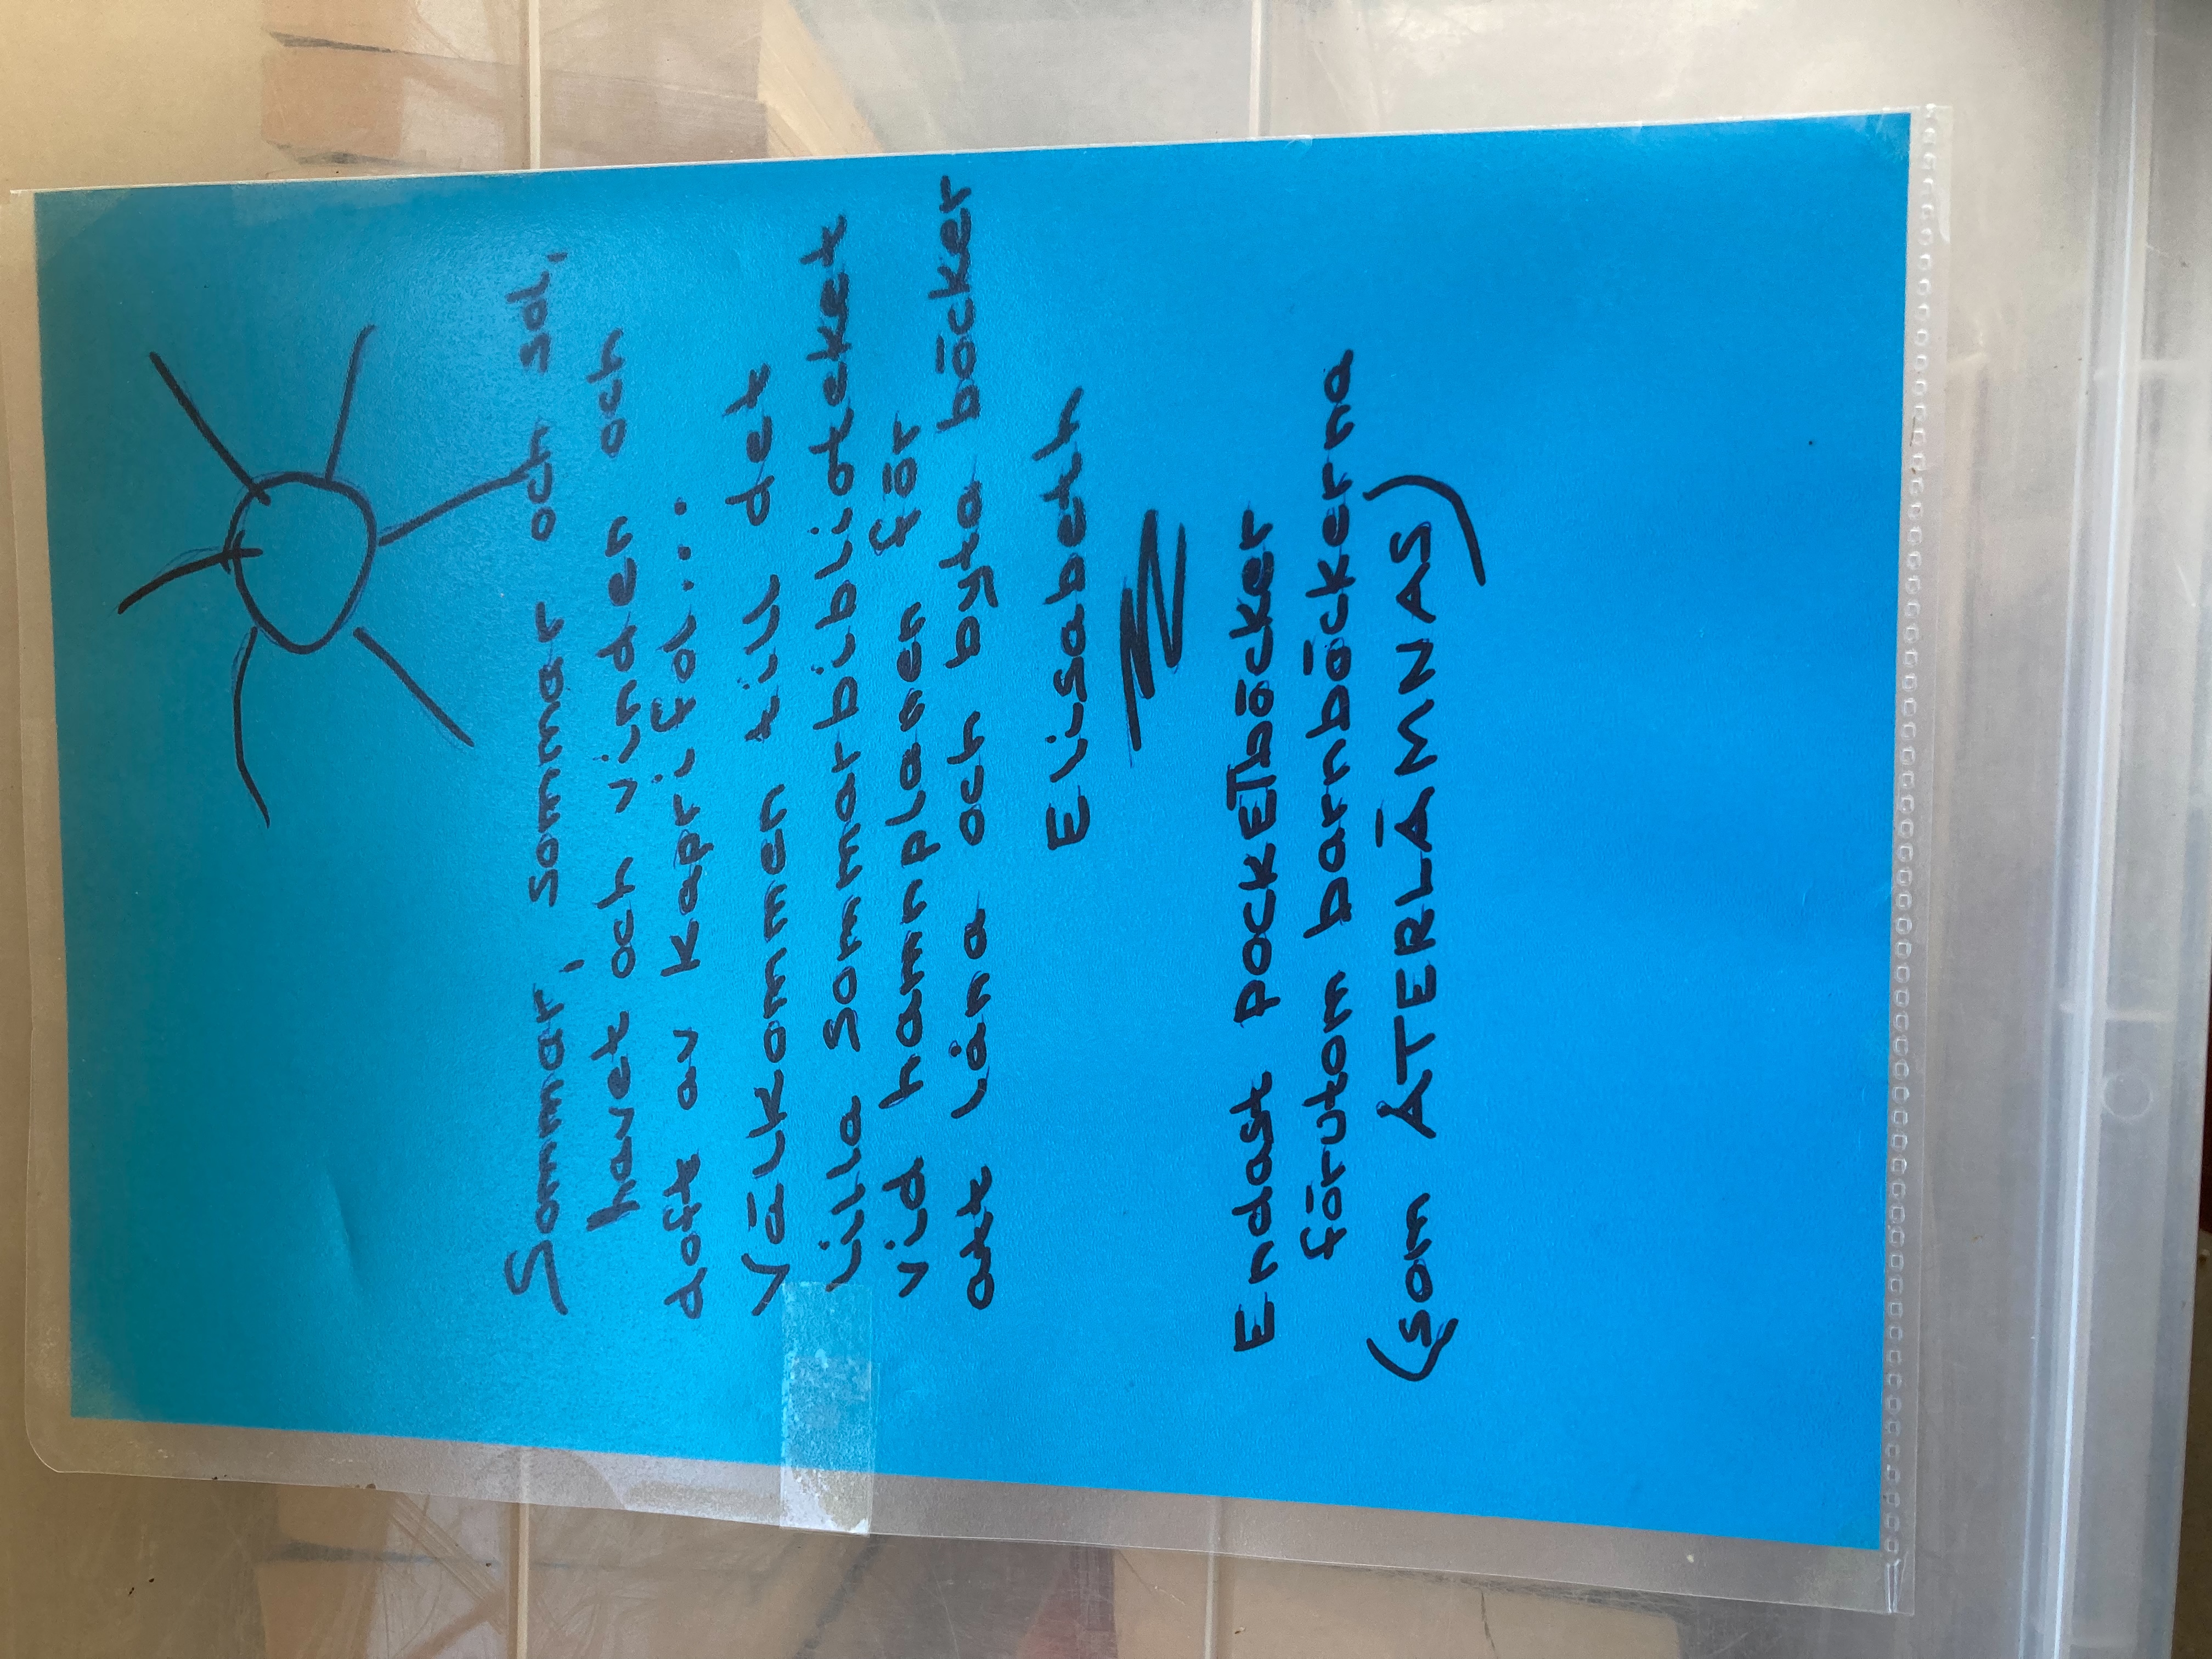 Sommar, sommar och sol,
havet och vinden och
doft av kaprifol...
Välkommen till det
lilla sommarbiblioteket
vid hamnplanen för
att låna och byta böcker
Elisabeth
Endast pockETböcker
förutom barnböckerna
(som ÅTERLÄMNAS)